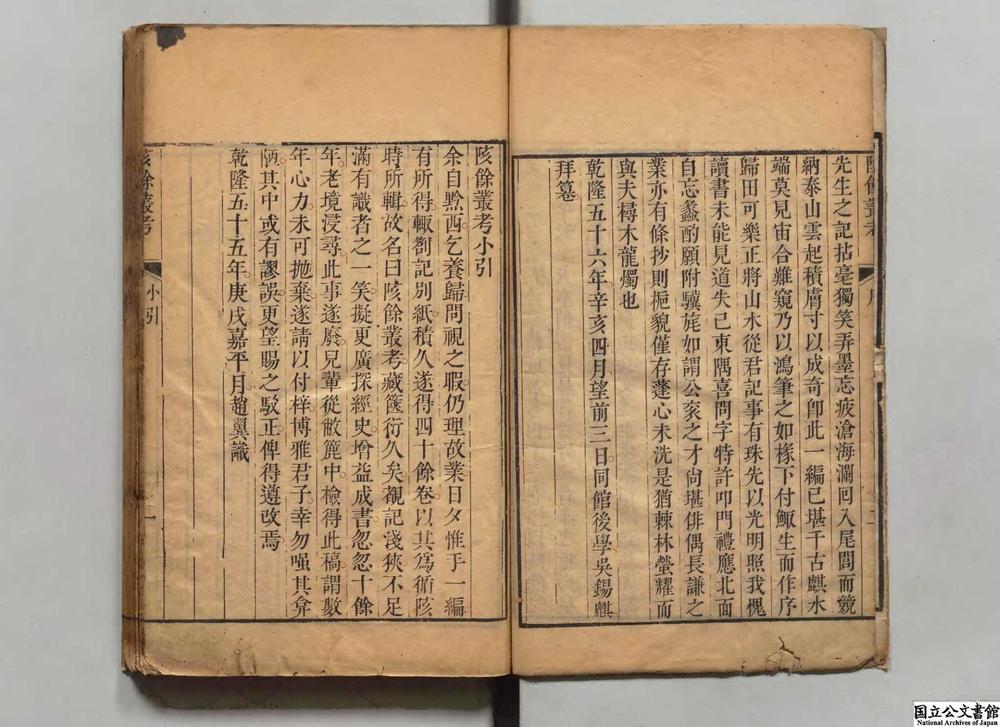 先生之記拈毫獨笑弄墨忘疲滄海瀾回入尾閭而競
納泰山雲起積膚寸以成奇卽此一編已堪千古麒木
端莫見宙合難窺乃以鴻筆之如椽下付鯫生而作序
歸田可樂正將山水從君記事有珠先以光明照我愧
讀書未能見道失已東隅喜問字特許叩門禮應北面
自忘蠡酌願附驥旄如謂公袞之才尙堪俳偶長謙之
業亦有條抄則梔貌僅存蓬心未洗是猶棘林螢耀而
與夫橁木龍燭也
乾隆五十六年辛亥四月望前三日同館後學吳錫麒
拜篹
陔餘叢考小引
余自黔西乞養歸問視之暇仍理故業日夕惟于一編
有所得輒劄記別紙積久遂得四十餘卷以其爲循陔
時所輯故名曰陔餘叢考藏篋衍久矣覩記淺狹不足
滿有識者之一笑擬更廣探經史增益成書忽忽十餘
年老境浸尋此事遂廢兒輩從敝簏中檢得此稿謂數
年心力未可拋棄遂請以付梓博雅君子幸勿嗤其弇
陋其中或有謬誤更望賜之駁正俾得遵改焉
乾隆五十五年庚戌嘉平月趙翼識
陔餘叢考
小引
一
国立公文書館
National Archives of Japan